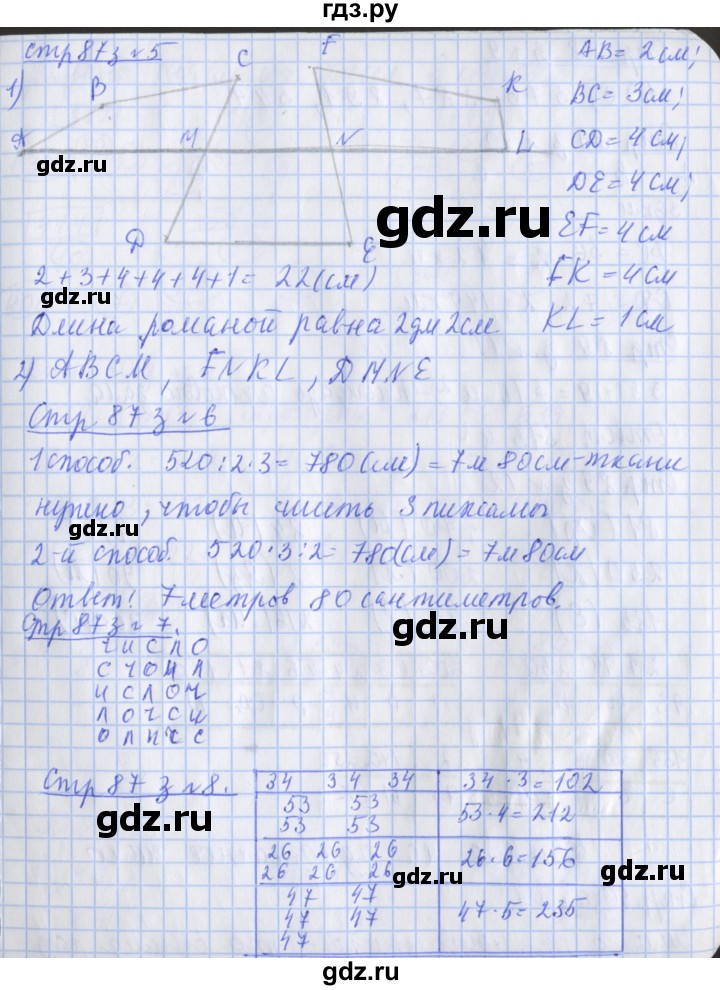 гдз.ру
Стр 87 з №5
1)
A B C F K
M N L
D E
AB = 2см;
BC = 3см;
CD = 4см;
DE = 4см;
EF = 4см
FK = 4см
KL = 1см
gdz.ru
gdz.ru
gdz.ru
2+3+4+4+4+1= 22(см)
Длина ломаной равна 2дм 2см
2) ABCM, FNKL, DMNE
Стр 87 з №6
1 способ. 520:2·3= 780(см) = 7м 80см-ткани
нужно, чтобы сшить 3 пижамы
gdz.ru
2-й способ. 520·3:2= 780(см)= 7м 80см
Ответ! 7метров 80 сантиметров.
gdz.ru
Стр 87 з № 7.
ч и с л о
с ч о и л
и с л о ч
л о ч с и
о л и ч с
Стр 87 з №8.
34 34 34 34·3=102
53 53 53·4=212
53 53
gdz.ru
26 26 26 26·6=156
26 26 26
gdz.ru
47 47 47·5=235
47 47
47
gdz.ru
gdz.ru
gdz.ru